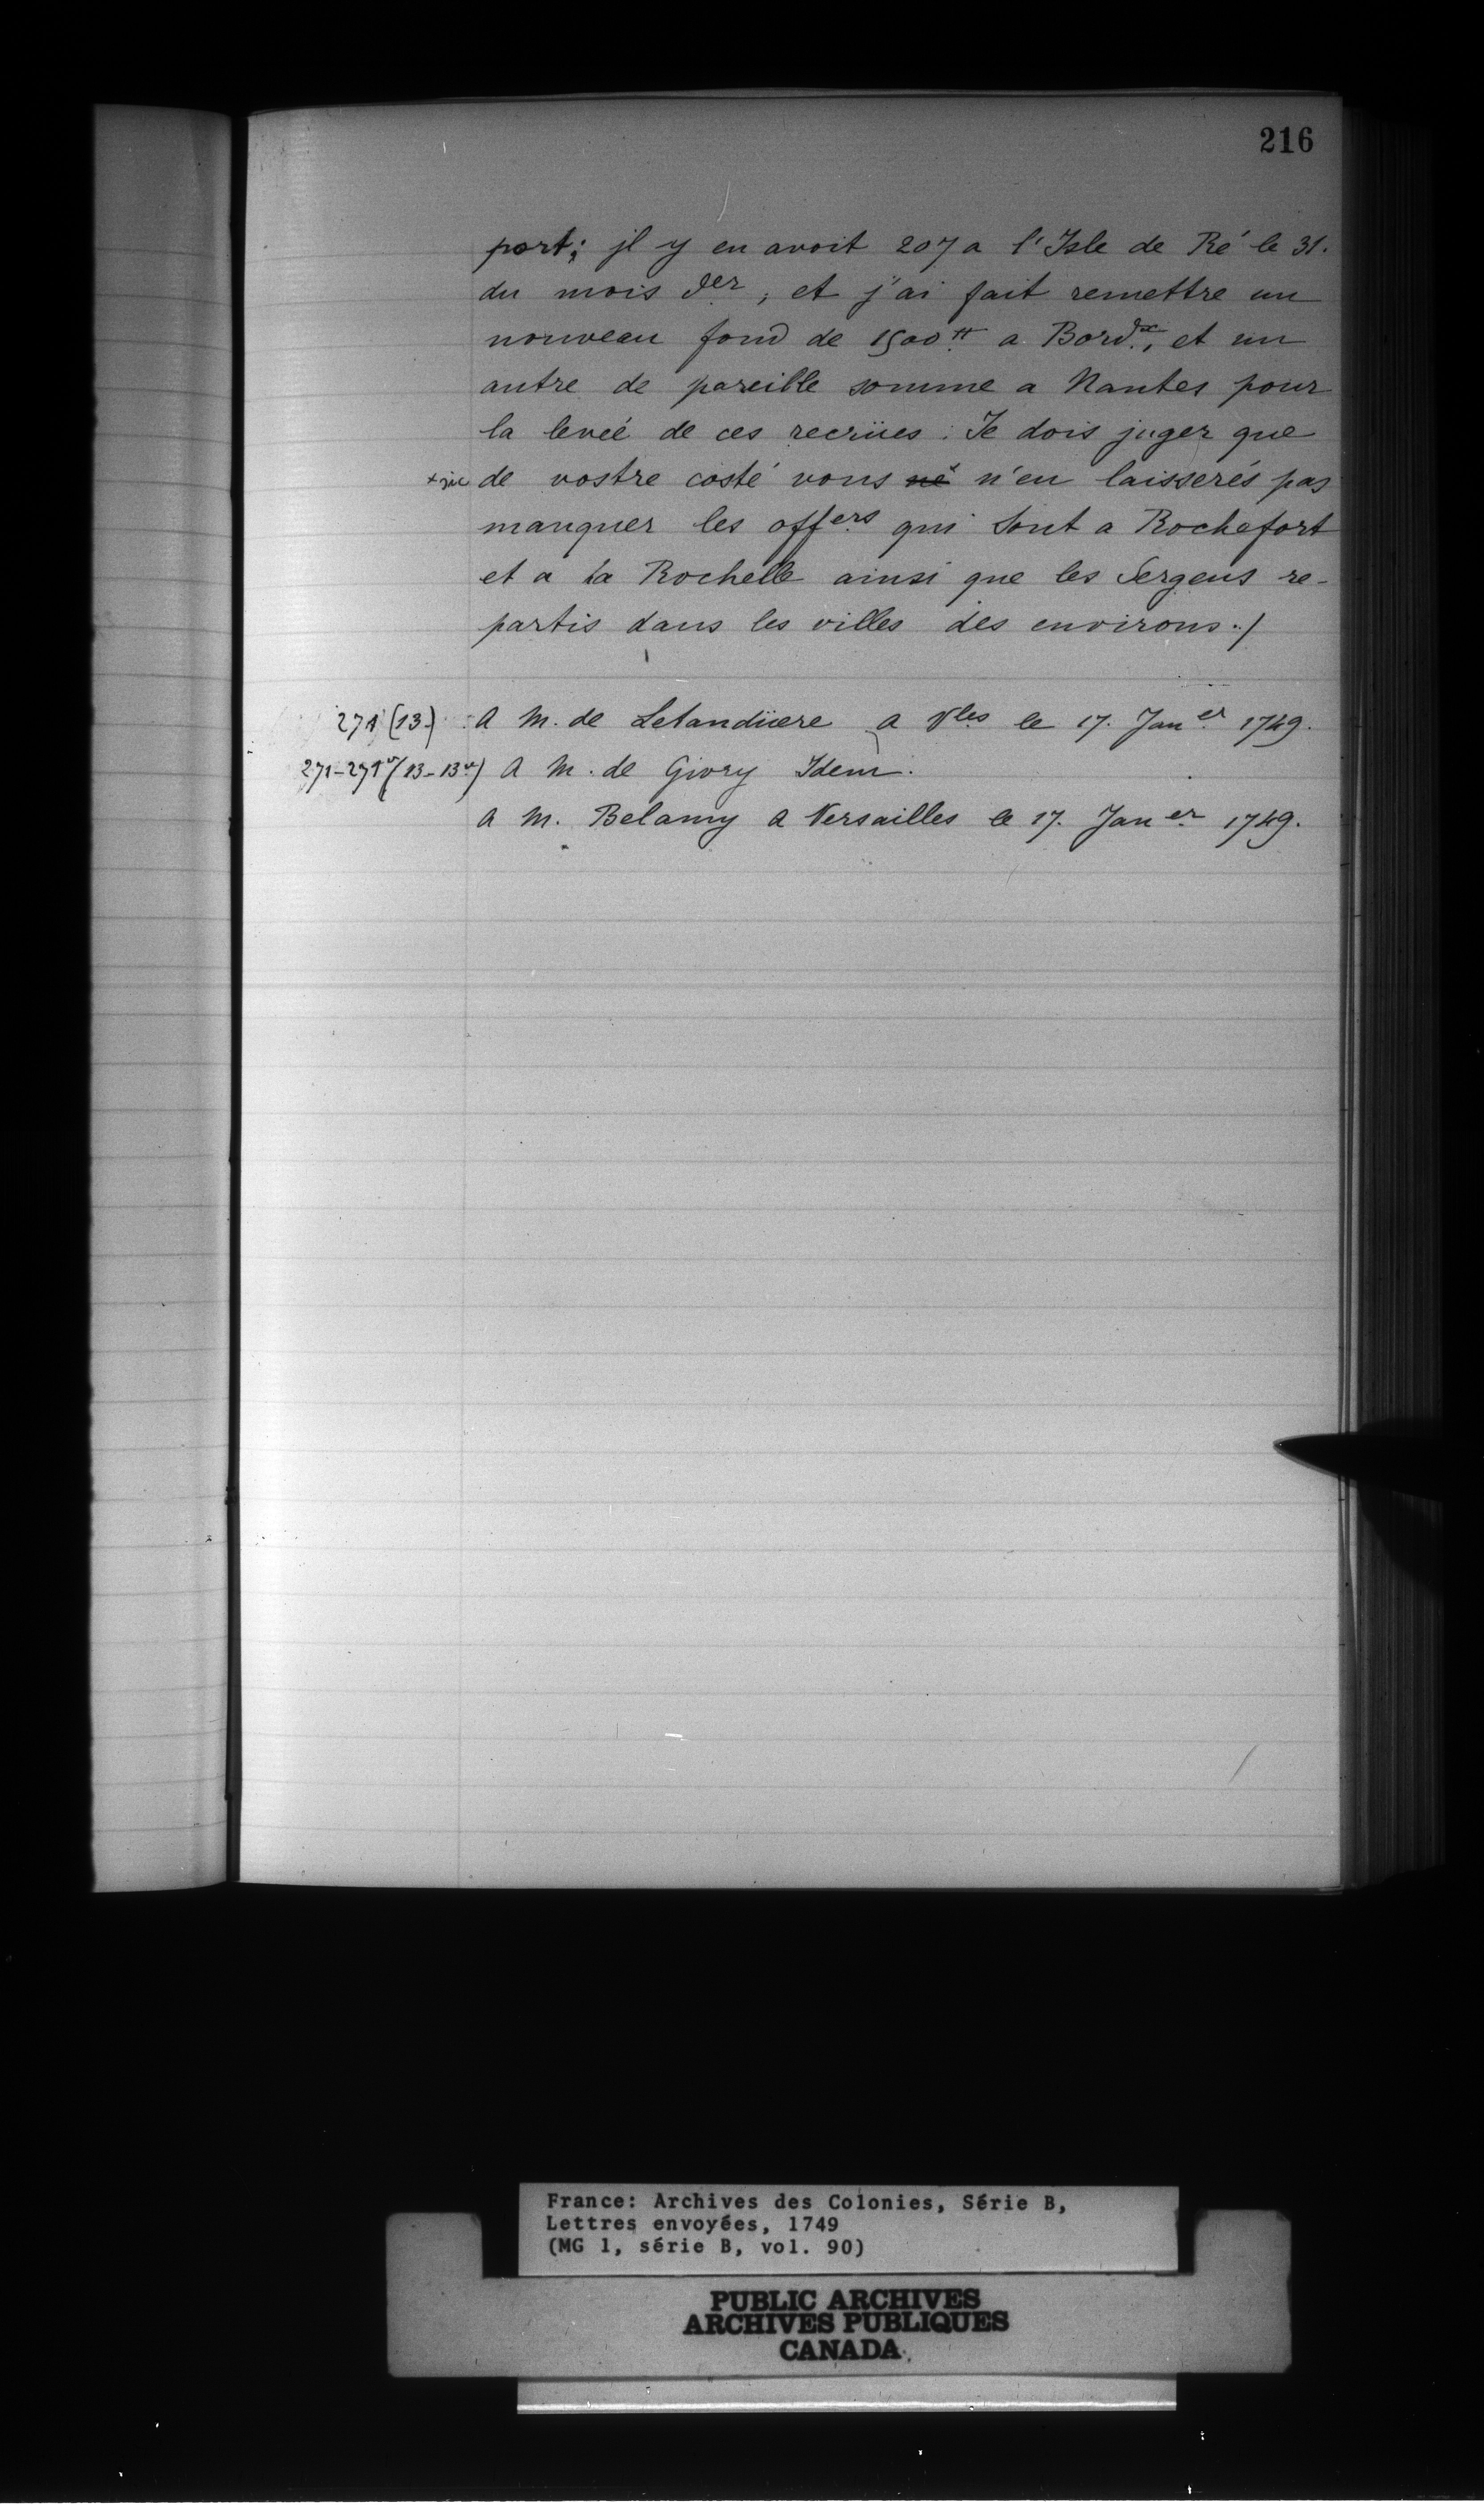 216
port; jl y en avoit 207 a l'Isle de Ré le 31.
du mois der, et j'ai fait remettre un
nouveau fond de 1500tt a Bordx, et un
autre de pareille somme a Nantes pour
la leveé de ces recrües. Je dois juger que
+sic de vostre costé vous ne n'en laisserés pas
manquer les offers qui sont a Rochefort
et a la Rochelle ainsi que les Sergens re-
partis dans les villes des environs./
271 (13) A M. de Letandüere a Vles le 17. Janer 1749.
271-271vo (13-13vo) A M. de Givry Idem.
A M. Belamy a Versailles le 17. Janer 1749.
France: Archives des Colonies, Série B,
Lettres envoyées, 1749
(MG 1, série B, vol. 90)
PUBLIC ARCHIVES
ARCHIVES PUBLIQUES
CANADA